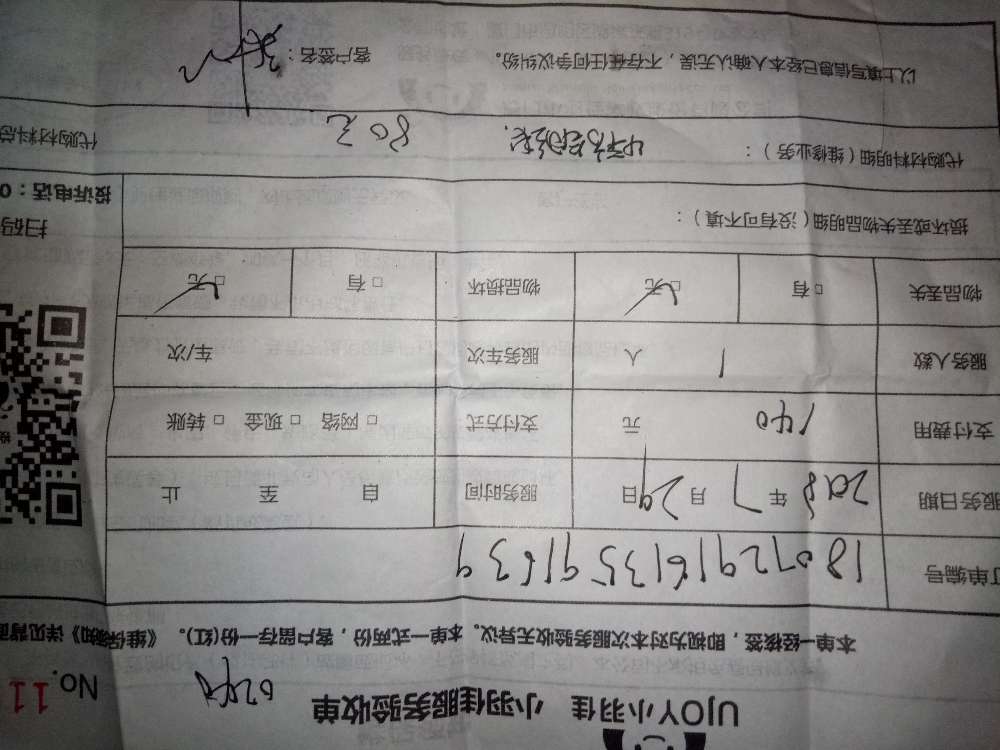 UJOY小羽佳 小羽佳服务验收单
No.11
本单一经接签，即视为对本次服务验收无异议。本单一式两份，客户留存一份(红)。《维保须知》详见背面
订单编号 180729161359 1639
服务日期 2018年7月29日 服务时间 自 至 止
支付费用 140 元 支付方式 □网络 □现金 □转账
服务人数 1 人 服务车次 车/次
物品丢失 □有 □无 物品损坏 □有 □无
损坏或丢失物品明细（没有可不填）：
扫码
投诉电话：0
代购材料明细（维修业务）： 80元 代购材料总
以上填写信息已经本人确认无误，不存在任何争议纠纷。 客户签名：